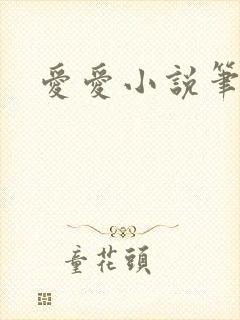 愛愛小説筆
童花頭